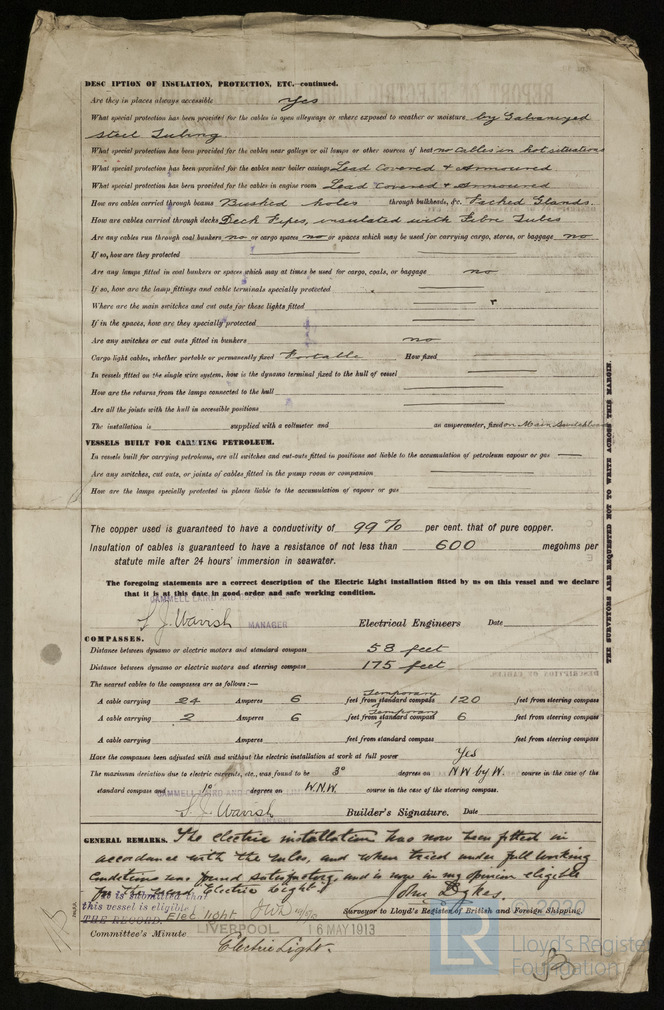 DESC IPTION OF INSULATION, PROTECTION, ETC.—continued.
Are they in places always accessible Yes
What special protection has been provided for the cables in open alleyways or where exposed to weather or moisture by Galvanized
Steel Tubing.
What special protection has been provided for the cables near galleys or oil lamps or other sources of heat no Cables in hot situations
What special protection has been provided for the cables near boiler casings Lead Covered & Armoured.
What special protection has been provided for the cables in engine room Lead Covered & Armoured
How are cables carried through beams Bushed holes through bulkheads, &c. Packed Glands.
How are cables carried through decks Deck Pipes, insulated with Fibre Tubes
Are any cables run through coal bunkers no or cargo spaces no or spaces which may be used for carrying cargo, stores, or baggage no
If so, how are they protected
Are any lamps fitted in coal bunkers or spaces which may at times be used for cargo, coals, or baggage no
If so, how are the lamp fittings and cable terminals specially protected
Where are the main switches and cut outs for these lights fitted
If in the spaces, how are they specially protected
Are any switches or cut outs fitted in bunkers no
Cargo light cables, whether portable or permanently fixed Portable How fixed
In vessels fitted on the single wire system, how is the dynamo terminal fixed to the hull of vessel
How are the returns from the lamps connected to the hull
Are all the joints with the hull in accessible positions
The installation is supplied with a voltmeter and an amperemeter, fixed on Main Switchboard
VESSELS BUILT FOR CARRYING PETROLEUM.
In vessels built for carrying petroleum, are all switches and cut-outs fitted in positions not liable to the accumulation of petroleum vapour or gas
Are any switches, cut outs, or joints of cables fitted in the pump room or companion
How are the lamps specially protected in places liable to the accumulation of vapour or gas
THE SURVEYORS ARE REQUESTED NOT TO WRITE ACROSS THIS MARGIN.
The copper used is guaranteed to have a conductivity of 99% per cent. that of pure copper.
Insulation of cables is guaranteed to have a resistance of not less than 600 megohms per
statute mile after 24 hours' immersion in seawater.
The foregoing statements are a correct description of the Electric Light installation fitted by us on this vessel and we declare
that it is at this date in good order and safe working condition.
CAMMELL LAIRD AND
S. J. Warish MANAGER Electrical Engineers Date
COMPASSES.
Distance between dynamo or electric motors and standard compass 58 feet
Distance between dynamo or electric motors and steering compass 175 feet
The nearest cables to the compasses are as follows:—
A cable carrying 24 Amperes 6 feet from temporary standard compass 120 feet from steering compass
A cable carrying 2 Amperes 6 feet from temporary standard compass 6 feet from steering compass
A cable carrying Amperes feet from standard compass feet from steering compass
Have the compasses been adjusted with and without the electric installation at work at full power Yes
The maximum deviation due to electric currents, etc., was found to be 3° degrees on NW by W. course in the case of the
standard compass and 1° degrees on W.N.W. course in the case of the steering compass.
CAMMELL LAIRD
S. J. Warish MANAGER Builder's Signature. Date
GENERAL REMARKS. The electric installation has now been fitted in
accordance with the rules, and when tried under full working
Conditions was found satisfactory, and is now in my opinion eligible
for the record Electric Light.
It is submitted that
this vessel is eligible
THE RECORD. Elec light
John Dykes.
Surveyor to Lloyd's Register of British and Foreign Shipping.
Committee's Minute LIVERPOOL 16 MAY 1913
Electric Light.
© 2020
LR
Lloyd's Register
Foundation